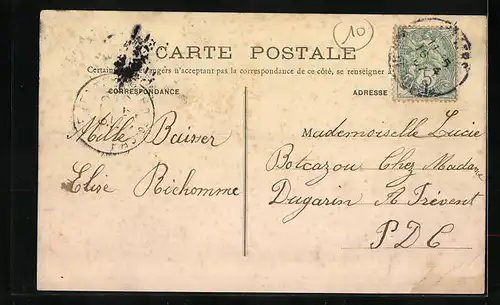 10
CARTE POSTALE
Certains pays étrangers n'acceptant pas la correspondance de ce côté, se renseigner à
CORRESPONDANCE
ADRESSE
Mille Baiser
Elise Richomme
Mademoiselle Lucie
Botcazou Chez Madame
Dugarin A Frévent
PDC